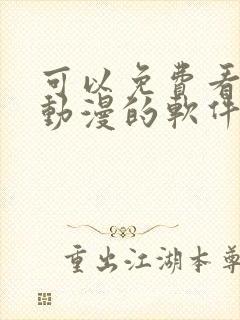 可以免費看
動漫的軟件
重出江湖本尊